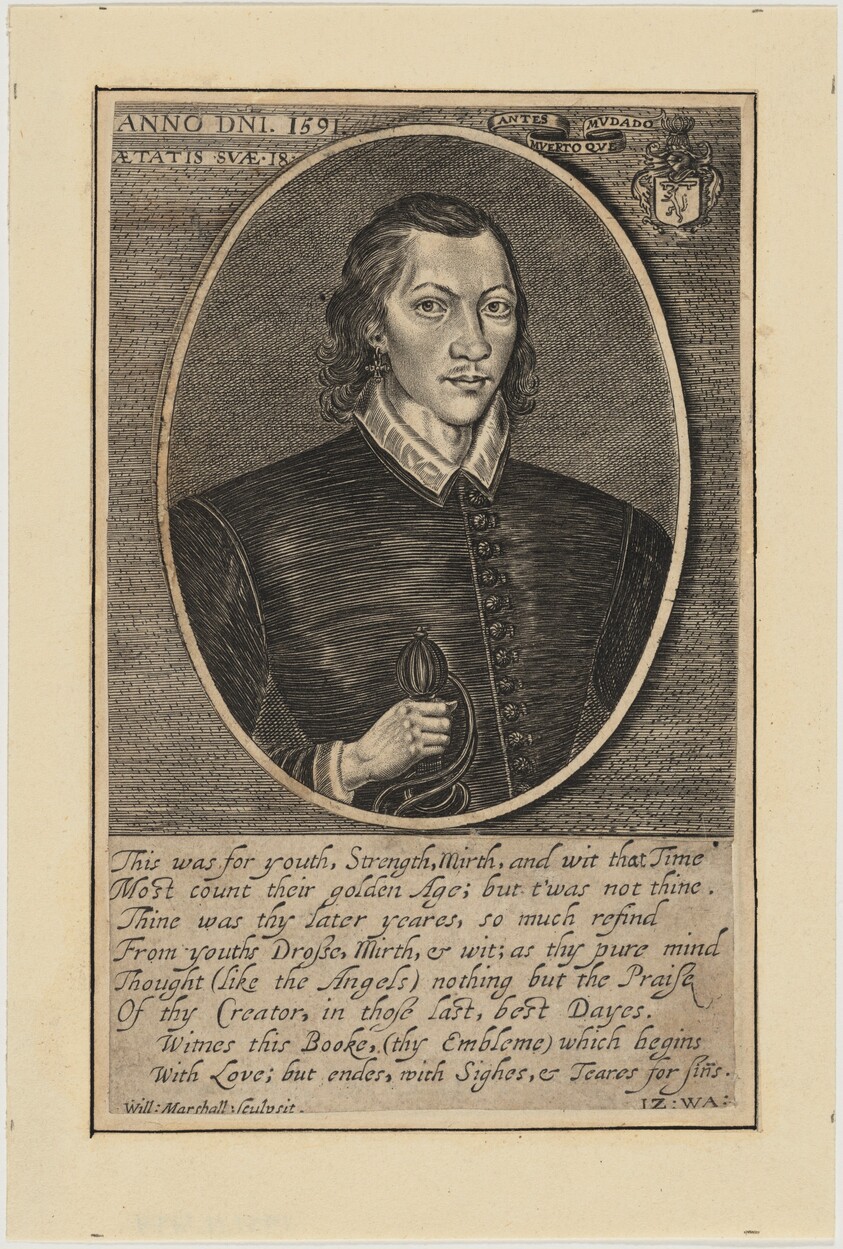 ANNO DNI. 1591.
ÆTATIS SVÆ. 18.
ANTES MVERTO QVE MVDADO
This was for youth, Strength, Mirth, and wit that Time
Most count their golden Age; but t'was not thine.
Thine was thy later yeares, so much refind
From youths Droſse, Mirth, & wit; as thy pure mind
Thought (like the Angels) nothing but the Praiſe
Of thy Creator, in thoſe last, best Dayes.
Witnes this Booke, (thy Embleme) which begins
With Love; but endes, with Sighes, & Teares for ſiñs.
Will: Marshall sculpsit.
IZ: WA: